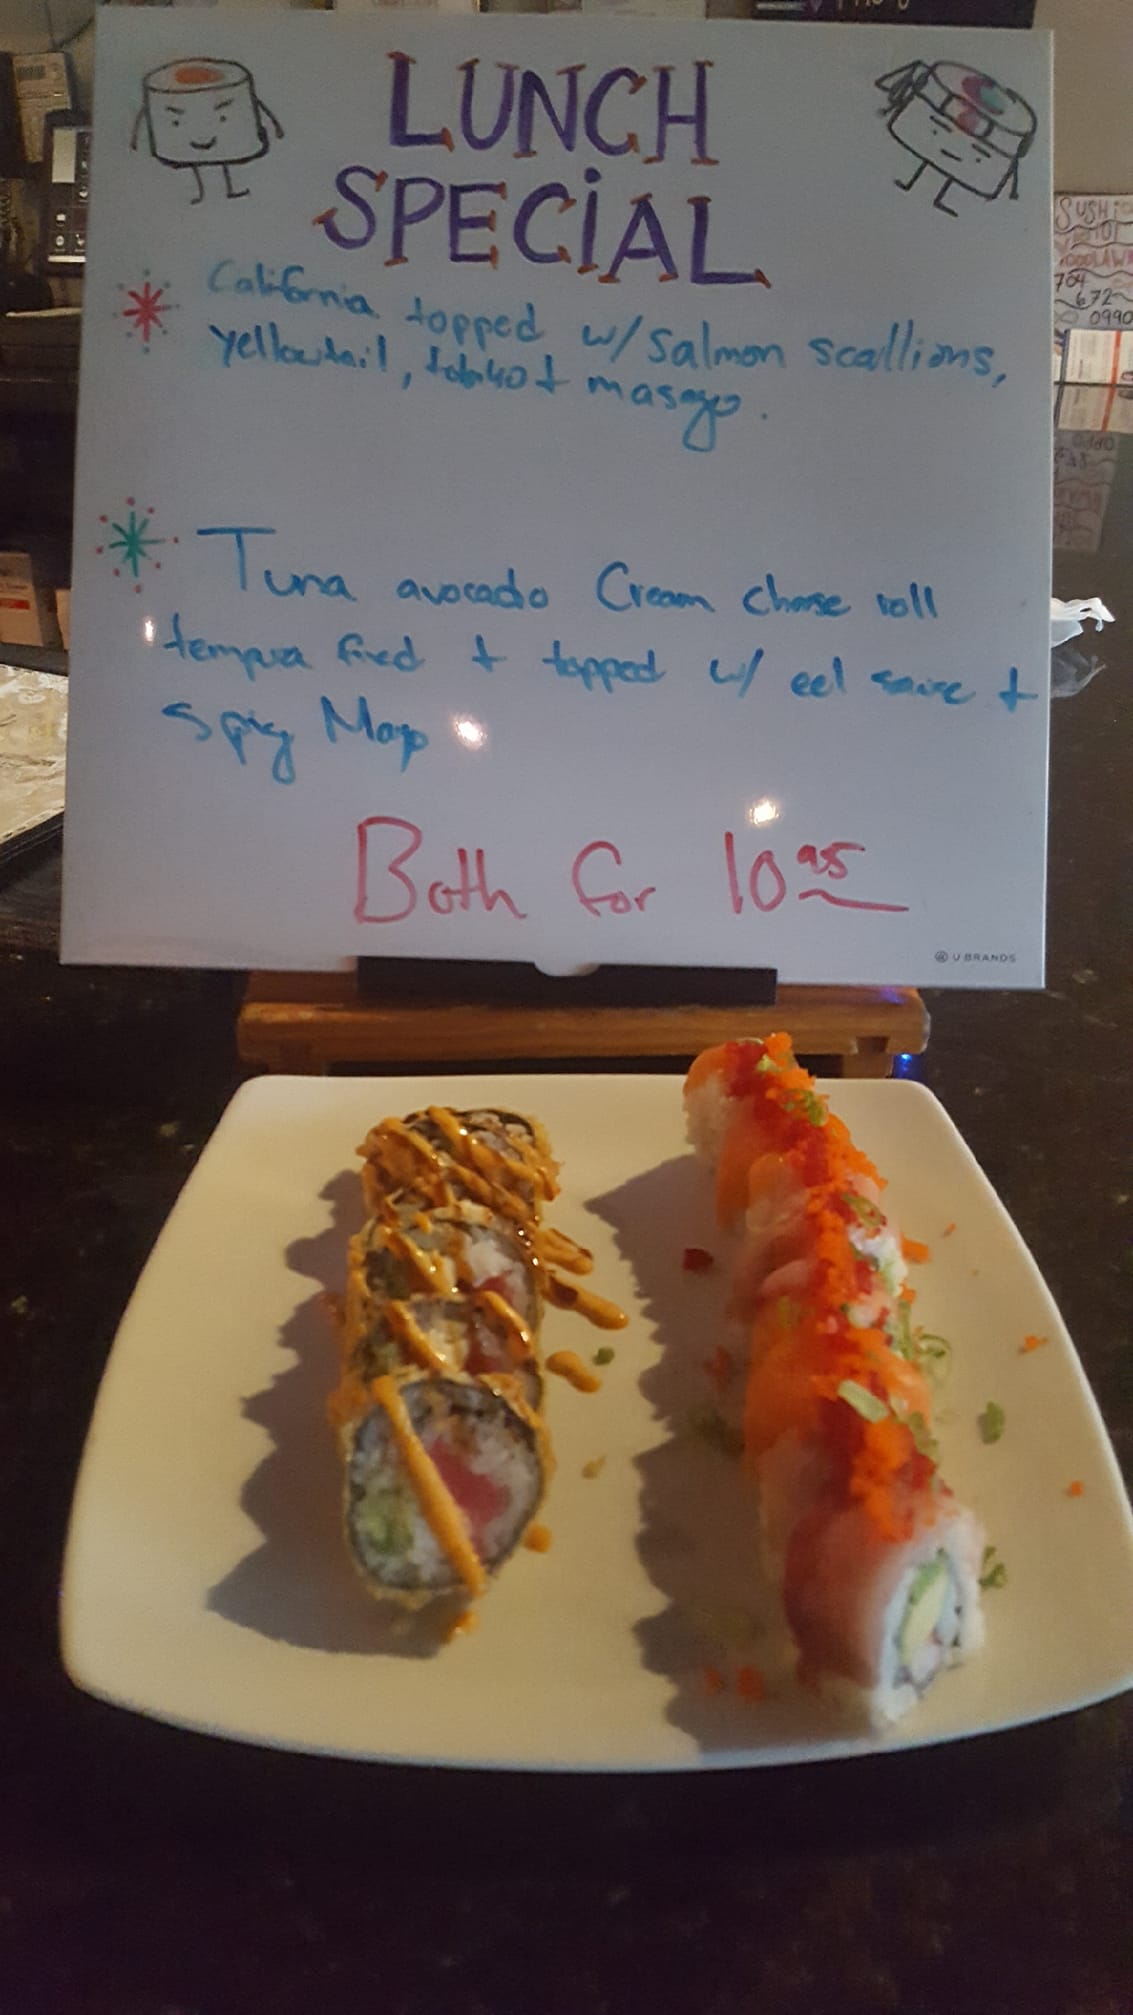 LUNCH
SPECiAL
California topped w/ salmon scallions,
yellowtail, tobiko + masago.
Tuna avocado Cream cheese roll
tempura fried + topped w/ eel sauce +
Spicy Mayo
Both for 10.95
U BRANDS
SUSHi
704
672
0990